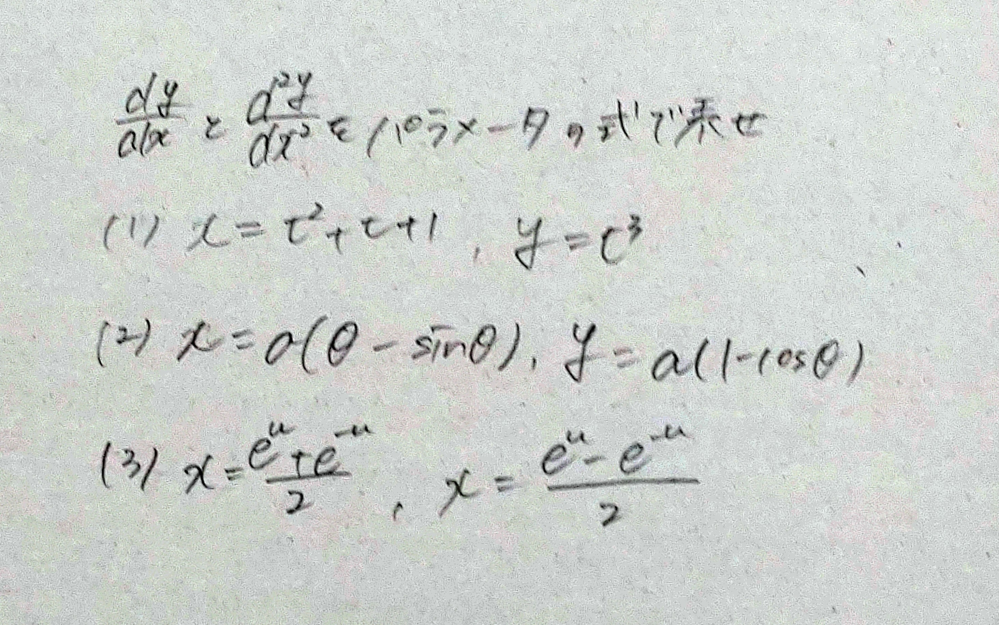 dy/dx と d²y/dx² を パラメータの式で表せ
(1) x = t² + t + 1 , y = t³
(2) x = a(θ - sinθ), y = a(1 - cosθ)
(3) x = (e^u + e^-u)/2 , x = (e^u - e^-u)/2